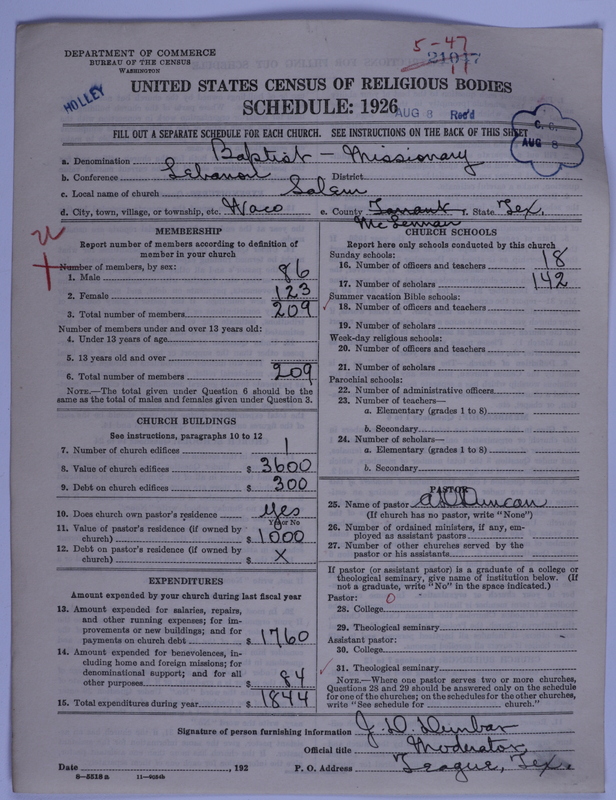 5-47
21017
11
DEPARTMENT OF COMMERCE
BUREAU OF THE CENSUS
WASHINGTON
HOLLEY
UNITED STATES CENSUS OF RELIGIOUS BODIES
SCHEDULE: 1926
AUG 8 Rec'd
C. S.
AUG 8
FILL OUT A SEPARATE SCHEDULE FOR EACH CHURCH. SEE INSTRUCTIONS ON THE BACK OF THIS SHEET
a. Denomination Baptist - Missionary
b. Conference Lebanon District
c. Local name of church Salem
d. City, town, village, or township, etc. Waco e. County Tarrant f. State Tex.
McLennan
MEMBERSHIP
Report number of members according to definition of member in your church
Number of members, by sex:
1. Male 86
2. Female 123
3. Total number of members 209
Number of members under and over 13 years old:
4. Under 13 years of age
5. 13 years old and over
6. Total number of members 209
NOTE.—The total given under Question 6 should be the
same as the total of males and females given under Question 3.
CHURCH BUILDINGS
See instructions, paragraphs 10 to 12
7. Number of church edifices 1
8. Value of church edifices $ 3600
9. Debt on church edifices $ 300
10. Does church own pastor's residence yes
Yes or No
11. Value of pastor's residence (if owned by
church) $ 1000
12. Debt on pastor's residence (if owned by
church) $ X
EXPENDITURES
Amount expended by your church during last fiscal year
13. Amount expended for salaries, repairs,
and other running expenses; for im-
provements or new buildings; and for
payments on church debt $ 1760
14. Amount expended for benevolences, in-
cluding home and foreign missions; for
denominational support; and for all
other purposes $ 84
15. Total expenditures during year $ 1844
CHURCH SCHOOLS
Report here only schools conducted by this church
Sunday schools:
16. Number of officers and teachers 18
17. Number of scholars 142
Summer vacation Bible schools:
18. Number of officers and teachers
19. Number of scholars
Week-day religious schools:
20. Number of officers and teachers
21. Number of scholars
Parochial schools:
22. Number of administrative officers
23. Number of teachers—
a. Elementary (grades 1 to 8)
b. Secondary
24. Number of scholars—
a. Elementary (grades 1 to 8)
b. Secondary
PASTOR
25. Name of pastor Duncan
(If church has no pastor, write "None")
26. Number of ordained ministers, if any, em-
ployed as assistant pastors
27. Number of other churches served by the
pastor or his assistants
If pastor (or assistant pastor) is a graduate of a college or
theological seminary, give name of institution below. (If
not a graduate, write "No" in the space indicated.)
Pastor: 0
28. College
29. Theological seminary
Assistant pastor:
30. College
31. Theological seminary
NOTE.—Where one pastor serves two or more churches,
Questions 28 and 29 should be answered only on the schedule
for one of the churches; on the schedules for the other churches,
write "See schedule for church."
Signature of person furnishing information J. D. Dunbar
Official title Moderator
Date , 192 P. O. Address Teague, Tex.
8—5518a 11—4684b